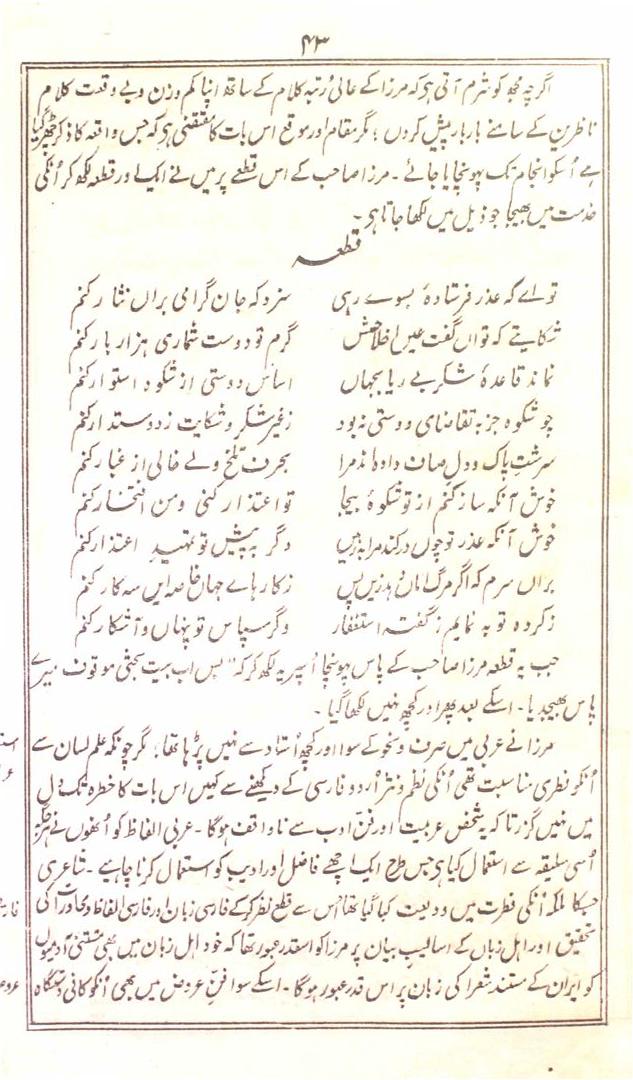 ۴۳
اگرچہ مجھ کو شرم آتی ہی کہ مرزا کے عالی رتبہ کلام کے ساتھ اپنا کم وزن و بے وقعت کلام
ناظرین کے سامنے بار بار پیش کروں؛ مگر مقام اور موقع اس بات کا مقتضی ہی کہ جس واقعہ کا ذکر چھڑ گیا
ہے اُسکو انجام تک پہونچایا جائے۔ مرزا صاحب کے اس قطعے پر میں نے ایک اور قطعہ لکھ کر اُنکی
خدمت میں بھیجا جو ذیل میں لکھا جاتا ہی۔
قطعہ
تو اے کہ عذر فرستادۂ بسوے رہی سزد کہ جان گرامی براں نثار کنم
شکایتے کہ تواں گفت عین اخلاصش گرم تو دوست شماری ہزار بار کنم
نماند قاعدۂ شکر بے ریا بجہاں اساس دوستی از شکوہ استوار کنم
چو شکوہ جز بہ تقاضای دوستی نہ بود ز غیر شکر و شکایت ز دوستدار کنم
سرشتِ پاک و دلِ صاف دادہ اند مرا بحرف تلخ ولے خالی از غبار کنم
خوش آنکہ ساز کنم از تو شکوۂ بیجا تو اعتذار کنی و من افتخار کنم
خوش آنکہ عذر تو چوں در کند مرا بہ زمیں دگر بہ پیش تو تمہیدِ اعتذار کنم
براں سرم کہ اگر مرگ اماں دہد زیں پس ز کارہاے جہاں خاصہ ایں سہ کار کنم
ز کردہ توبہ نمایم ز گفتہ استغفار دگر سپاس تو پنہاں و آشکار کنم
جب یہ قطعہ مرزا صاحب کے پاس پہونچا اُسپر یہ لکھ کر کہ "بس اب بیت بحثی موقوف" میرے
پاس بھیجدیا۔ اسکے بعد پھر اور کچھ نہیں لکھا گیا۔
مرزا نے عربی میں صرف و نحو کے سوا اور کچھ اُستاد سے نہیں پڑہا تھا؛ مگر چونکہ علم لسان سے
اُنکو فطری مناسبت تھی اُنکی نظم و نثر اُردو فارسی کے دیکھنے سے کہیں اس بات کا خطرہ تک دل
میں نہیں گزرتا کہ یہ شخص عربیت اور فنِ ادب سے ناواقف ہوگا۔ عربی الفاظ کو اُنھوں نے ہر جگہ
اُسی سلیقہ سے استعمال کیا ہی جس طرح ایک اچھے فاضل اور ادیب کو استعمال کرنا چاہیے۔ شاعری
جسکا ملکہ اُنکی فطرت میں ودیعت کیا گیا تھا اُس سے قطع نظر کر کے فارسی زبان اور فارسی الفاظ و محاورات کی
تحقیق اور اہل زبان کے اسالیب بیان پر مرزا کو اسقدر عبور تھا کہ خود اہل زبان میں بھی مستثنیٰ آدمیوں
کو ایران کے مستند شعرا کی زبان پر اس قدر عبور ہوگا۔ اسکے سوا فن عروض میں بھی اُنکو کافی دستگاہ